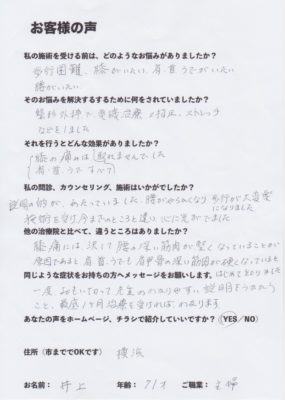 お客様の声
私の施術を受ける前は、どのようなお悩みがありましたか？
歩行困難、膝がいたい、肩、首、うでがいたい
腰がいたい
そのお悩みを解決するために何をされていましたか？
整形外科で 電機治療
ストレッチ
などをしました
それを行うとどんな効果がありましたか？
膝の痛みは 取れませんでした
肩、首、うで すべて
私の問診、カウンセリング、施術はいかがでしたか？
説明の的が、あたっていました。腰がやわらかくなり 歩行が大変楽になりました
施術を受け、今までのところと違い、心に光がでました
他の治療院と比べて、違うところはありましたか？
膝痛には、決して腰の深い筋肉が堅くなっていることが
原因であると、肩、首、うでも、肩甲骨の深い筋肉が硬くなっていると
はじめてしりました
同じような症状をお持ちの方へメッセージをお願いします。
一度 おもいきって 先生のわかりやすい 説明をうけたら
こと、最底1ヶ月治療を受ければ、わかります
あなたの声をホームページ、チラシで紹介していいですか？ (YES／NO)
住所（市まででOKです） 横浜
お名前： 井上 年齢： 71才 ご職業： 主婦